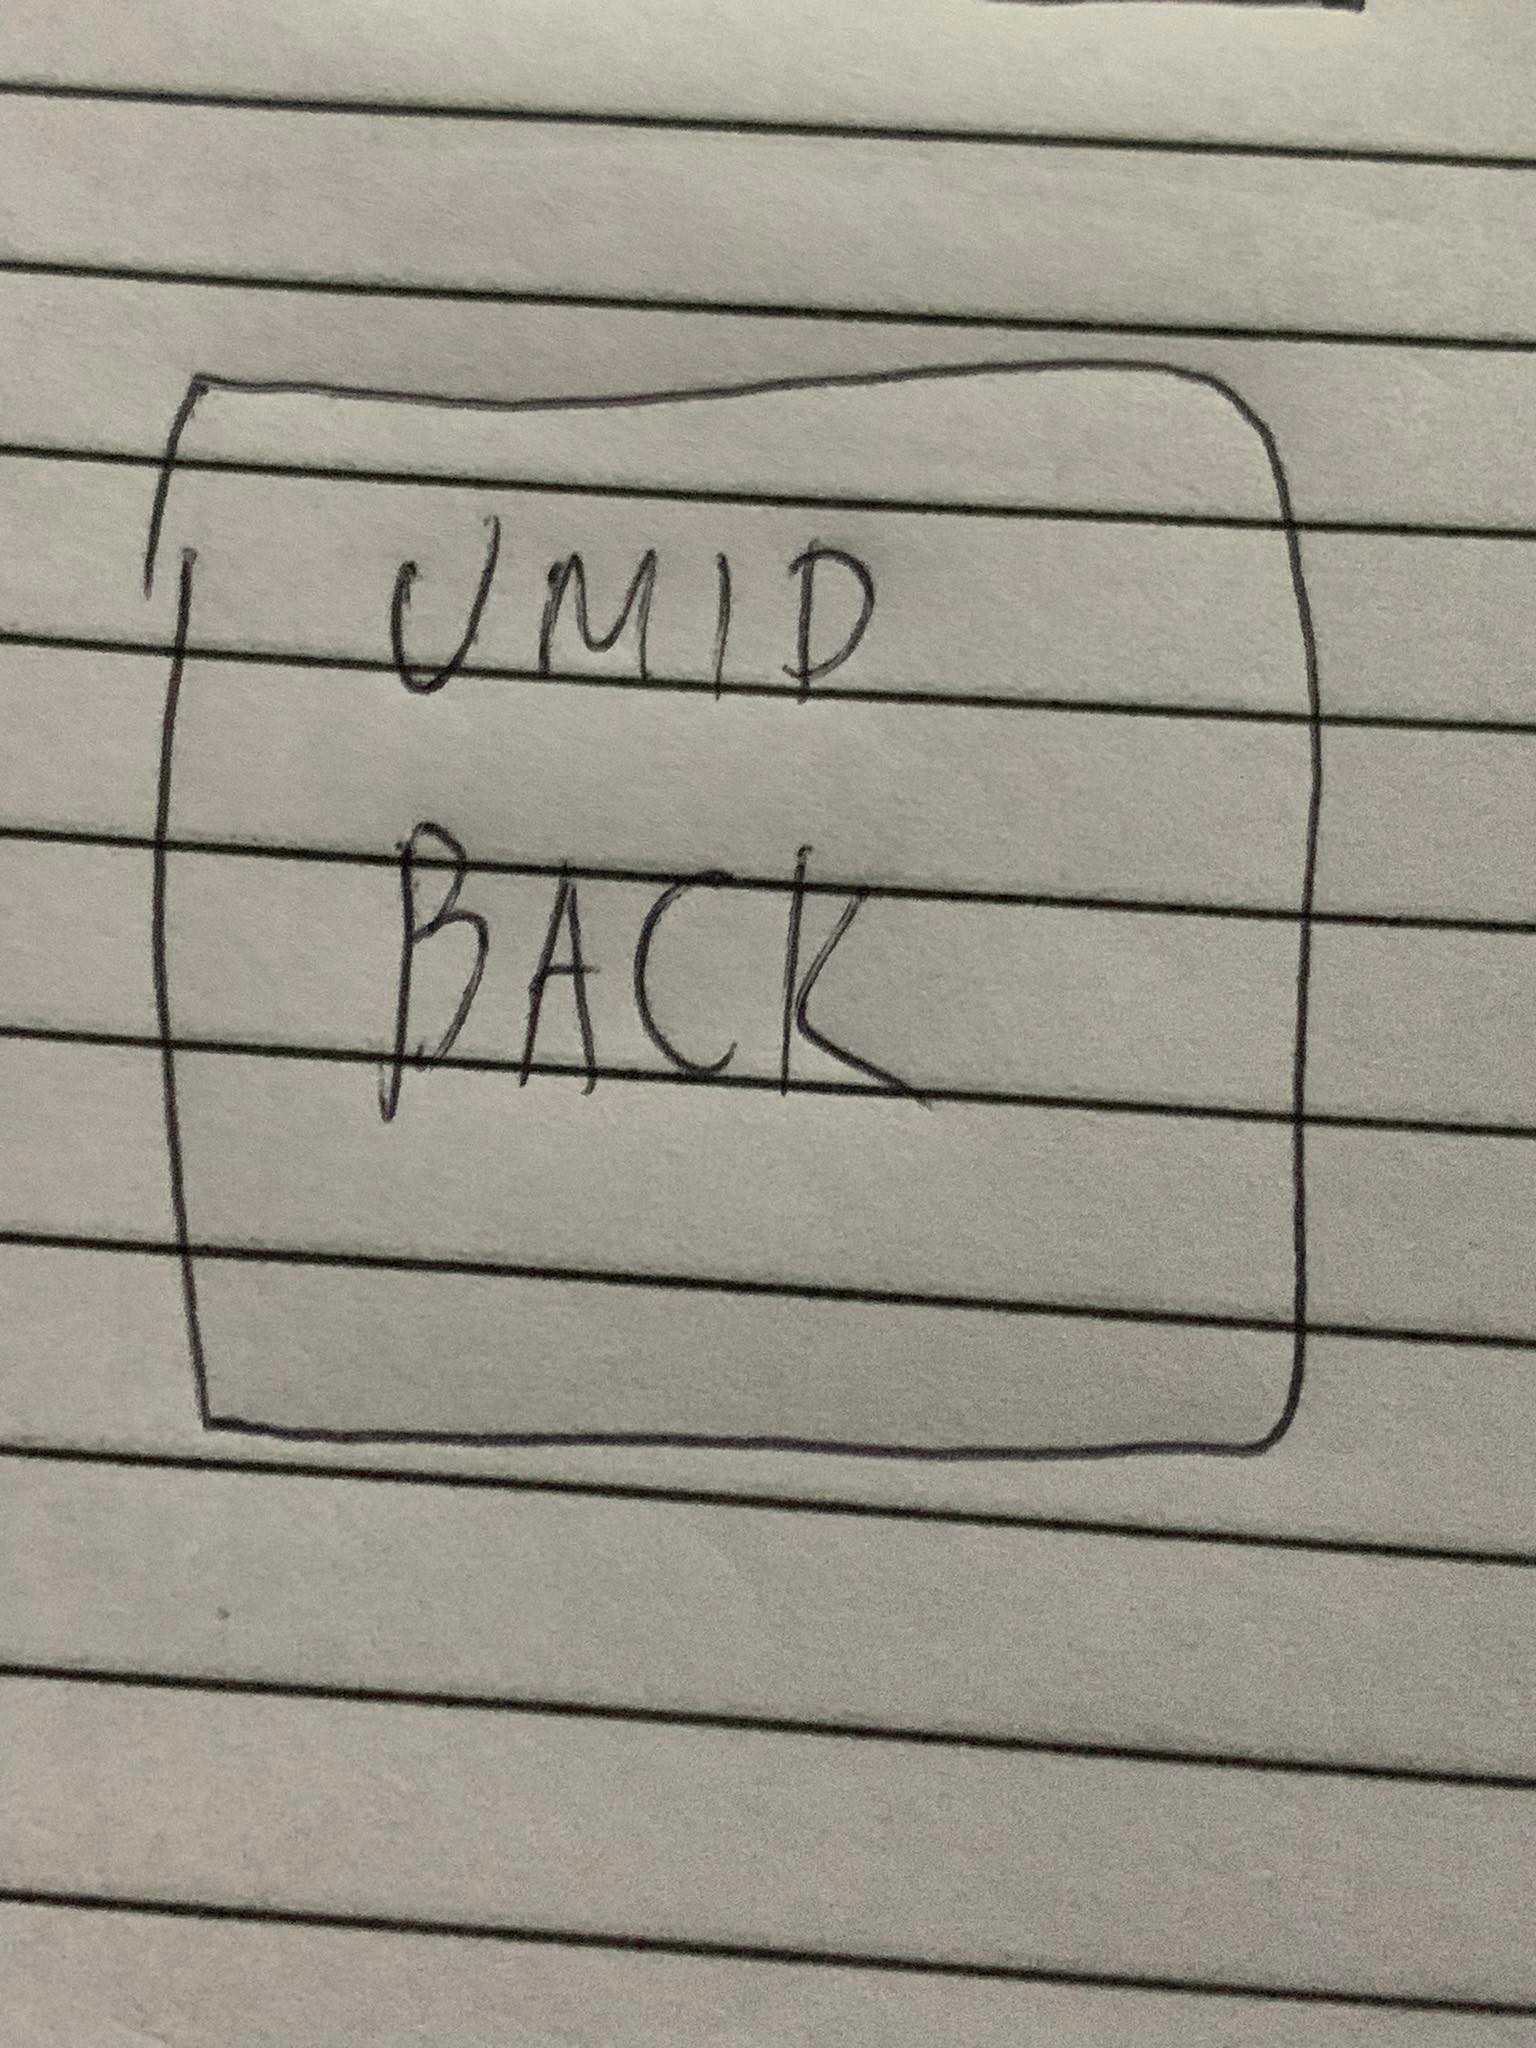 UMID
BACK